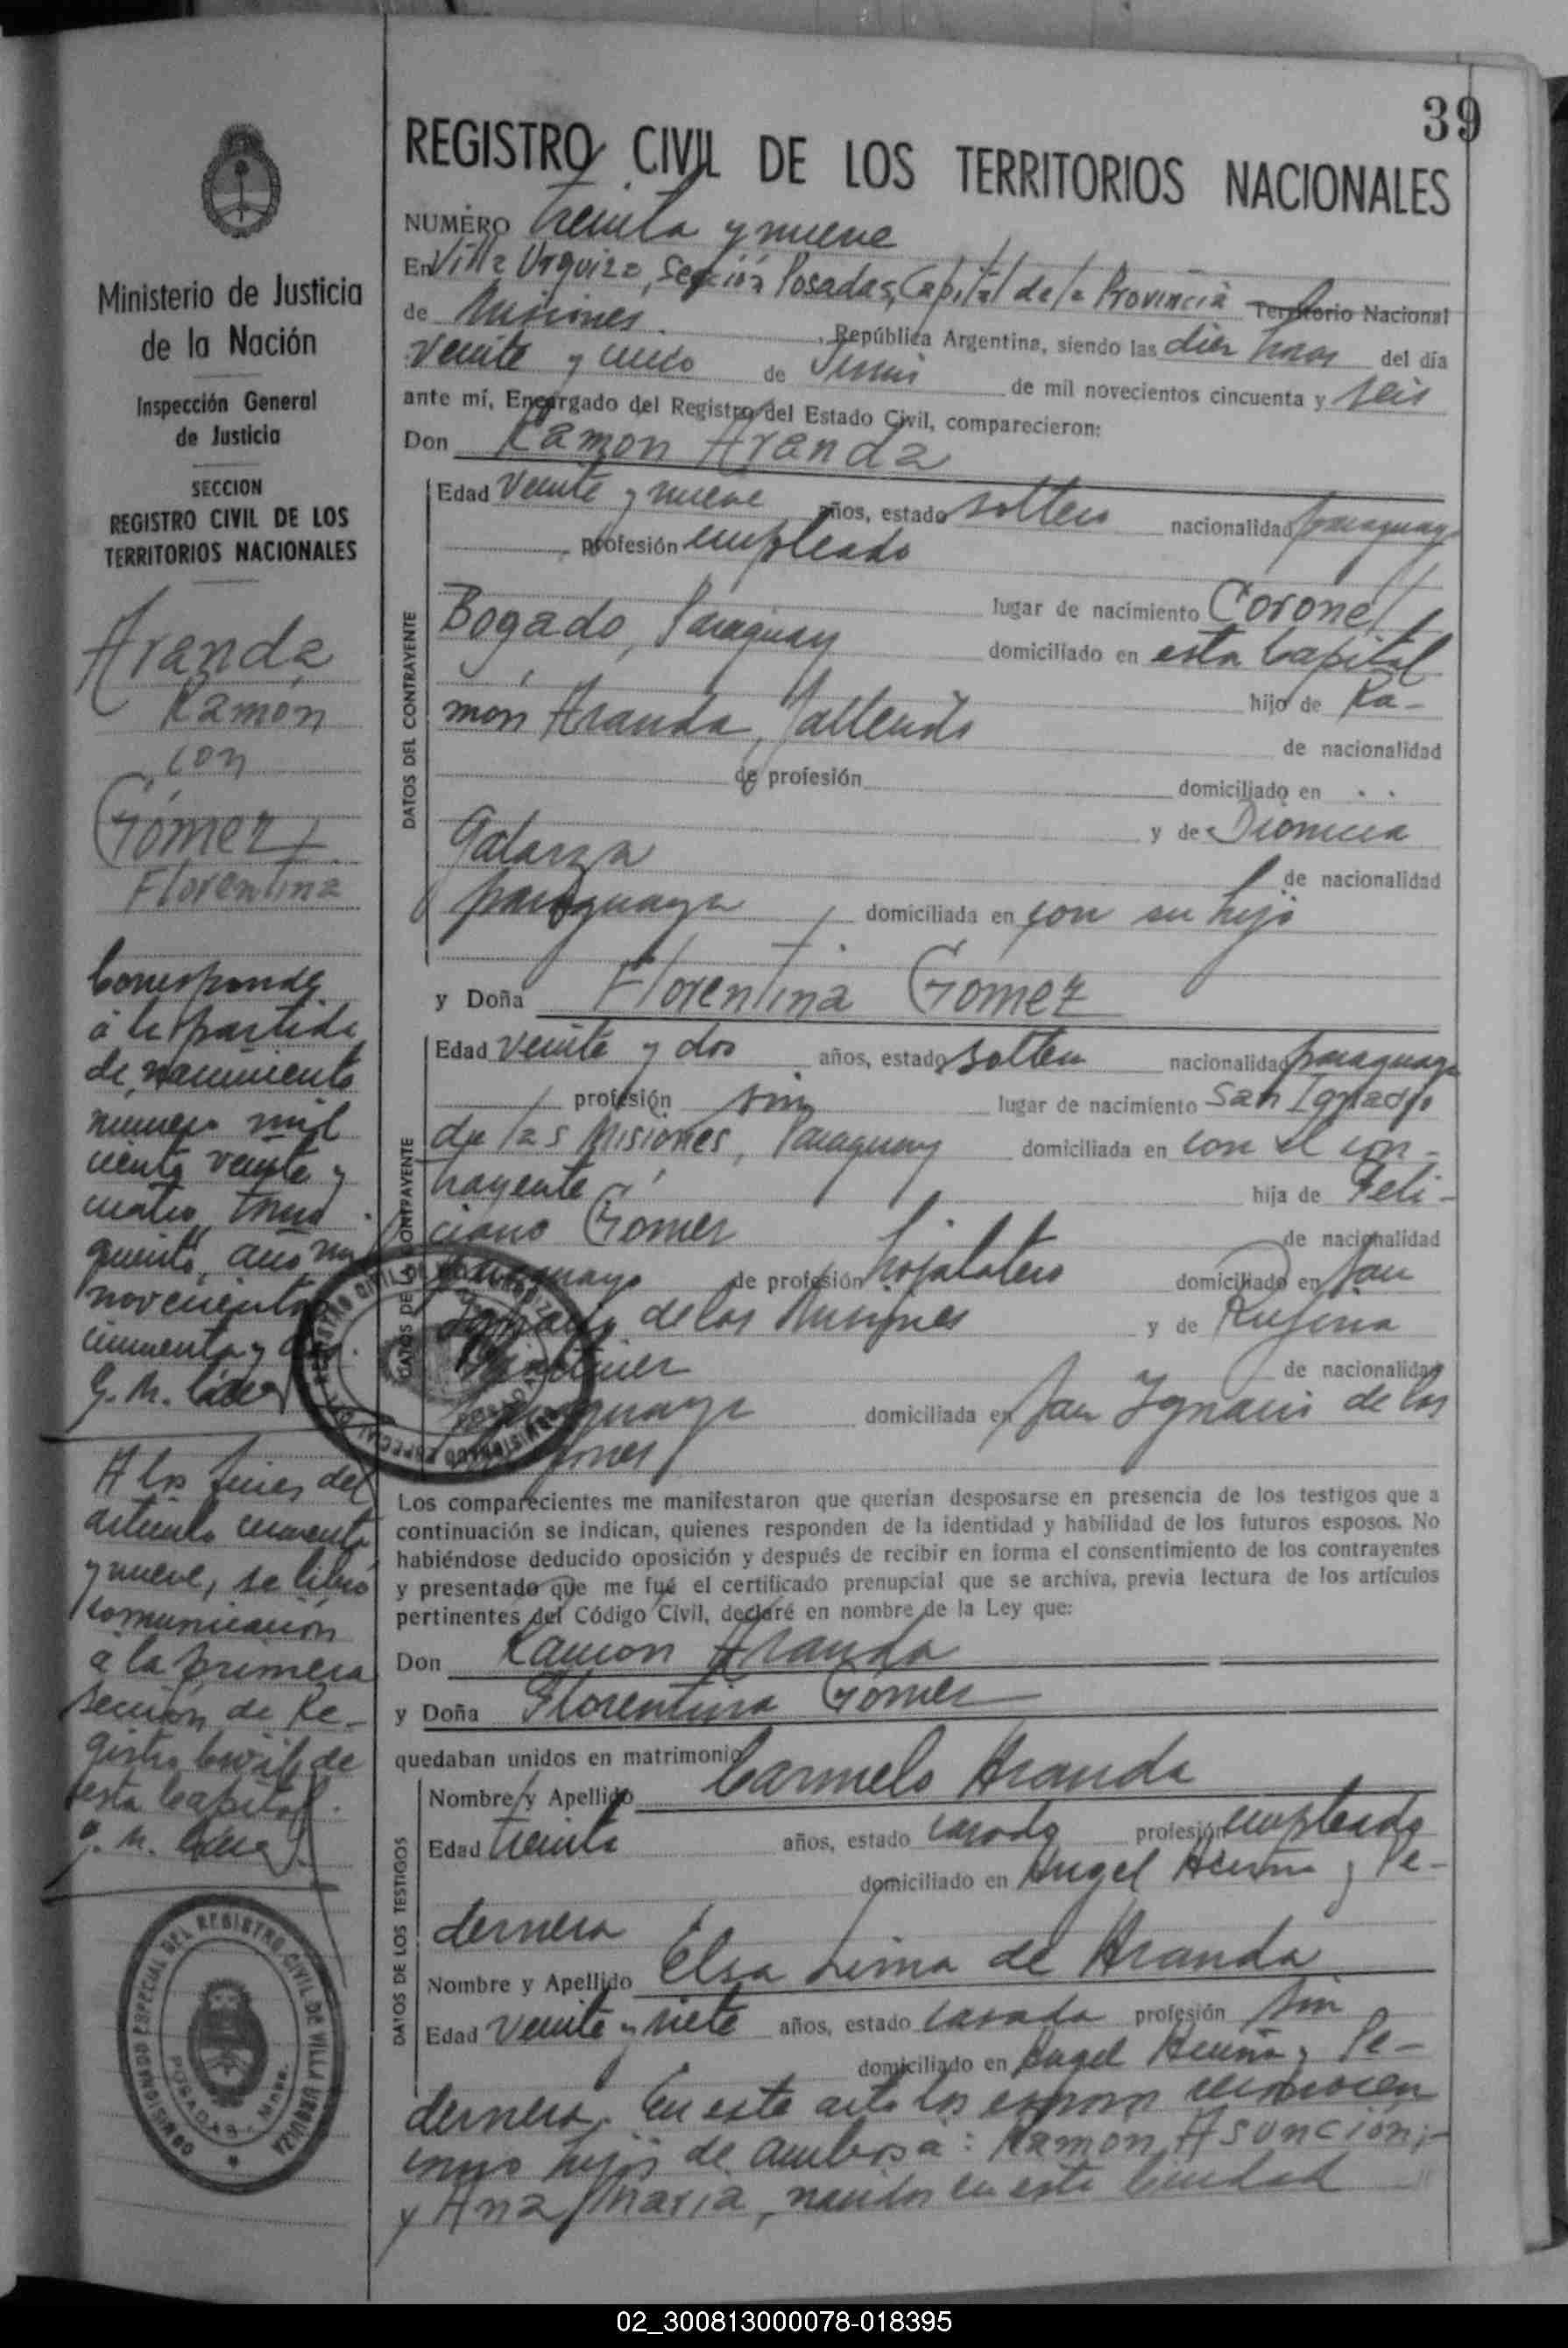 39
REGISTRO CIVIL DE LOS TERRITORIOS NACIONALES
NUMERO treinta y nueve
En Villa Urquiza, Sección Posadas, Capital de la Provincia Territorio Nacional
de Misiones. , República Argentina, siendo las diez horas del día
veinte y cinco de Junio de mil novecientos cincuenta y seis
ante mí, Encargado del Registro del Estado Civil, comparecieron:
Don Ramón Aranda
DATOS DEL CONTRAYENTE
Edad veinte y nueve años, estado soltero nacionalidad paraguaya
, profesión empleado
lugar de nacimiento Coronel
Bogado, Paraguay domiciliado en esta Capital
hijo de Ra-
món Aranda, fallecido de nacionalidad
de profesión domiciliado en
y de Dionicia
Galarza de nacionalidad
paraguaya domiciliada en con su hijo
y Doña Florentina Gómez
DATOS DE LA CONTRAYENTE
Edad veinte y dos años, estado soltera nacionalidad paraguaya
profesión sin lugar de nacimiento San Ignacio
de las Misiones, Paraguay domiciliada en con el con-
trayente hija de Feli-
ciano Gómez de nacionalidad
paraguayo de profesión hojalatero domiciliado en San
Ignacio de las Misiones y de Rufina
Martinez de nacionalidad
paraguaya domiciliada en San Ignacio de las
Misiones
Los comparecientes me manifestaron que querían desposarse en presencia de los testigos que a
continuación se indican, quienes responden de la identidad y habilidad de los futuros esposos. No
habiéndose deducido oposición y después de recibir en forma el consentimiento de los contrayentes
y presentado que me fué el certificado prenupcial que se archiva, previa lectura de los artículos
pertinentes del Código Civil, declaré en nombre de la Ley que:
Don Ramón Aranda
y Doña Florentina Gómez
quedaban unidos en matrimonio
DATOS DE LOS TESTIGOS
Nombre y Apellido Carmelo Aranda
Edad treinta años, estado casado profesión empleado
domiciliado en Angel Acuña y Pe-
dernera
Nombre y Apellido Elsa Lima de Aranda
Edad veinte y siete años, estado casada profesión sin
domiciliado en Angel Acuña y Pe-
dernera. En este acto los esposos reconocen
como hijos de ambos a: Ramón Asunción,
y Ana María, nacidos en esta Ciudad
Ministerio de Justicia
de la Nación
Inspección General
de Justicia
SECCION
REGISTRO CIVIL DE LOS
TERRITORIOS NACIONALES
Aranda
Ramón
con
Gómez
Florentina
Corresponde
á la partida
de nacimiento
número mil
ciento veinte y
cuatro, tomo
quinto, año mil
novecientos
cincuenta y dos.
G. M.
A los fines del
artículo cincuenta
y nueve, se libró
comunicación
a la primera
Sección de Re-
gistro Civil de
esta Capital.
G. M.
COMISIONADO ESPECIAL DEL REGISTRO CIVIL DE VILLA URQUIZA
POSADAS - Mnes.
02_300813000078-018395